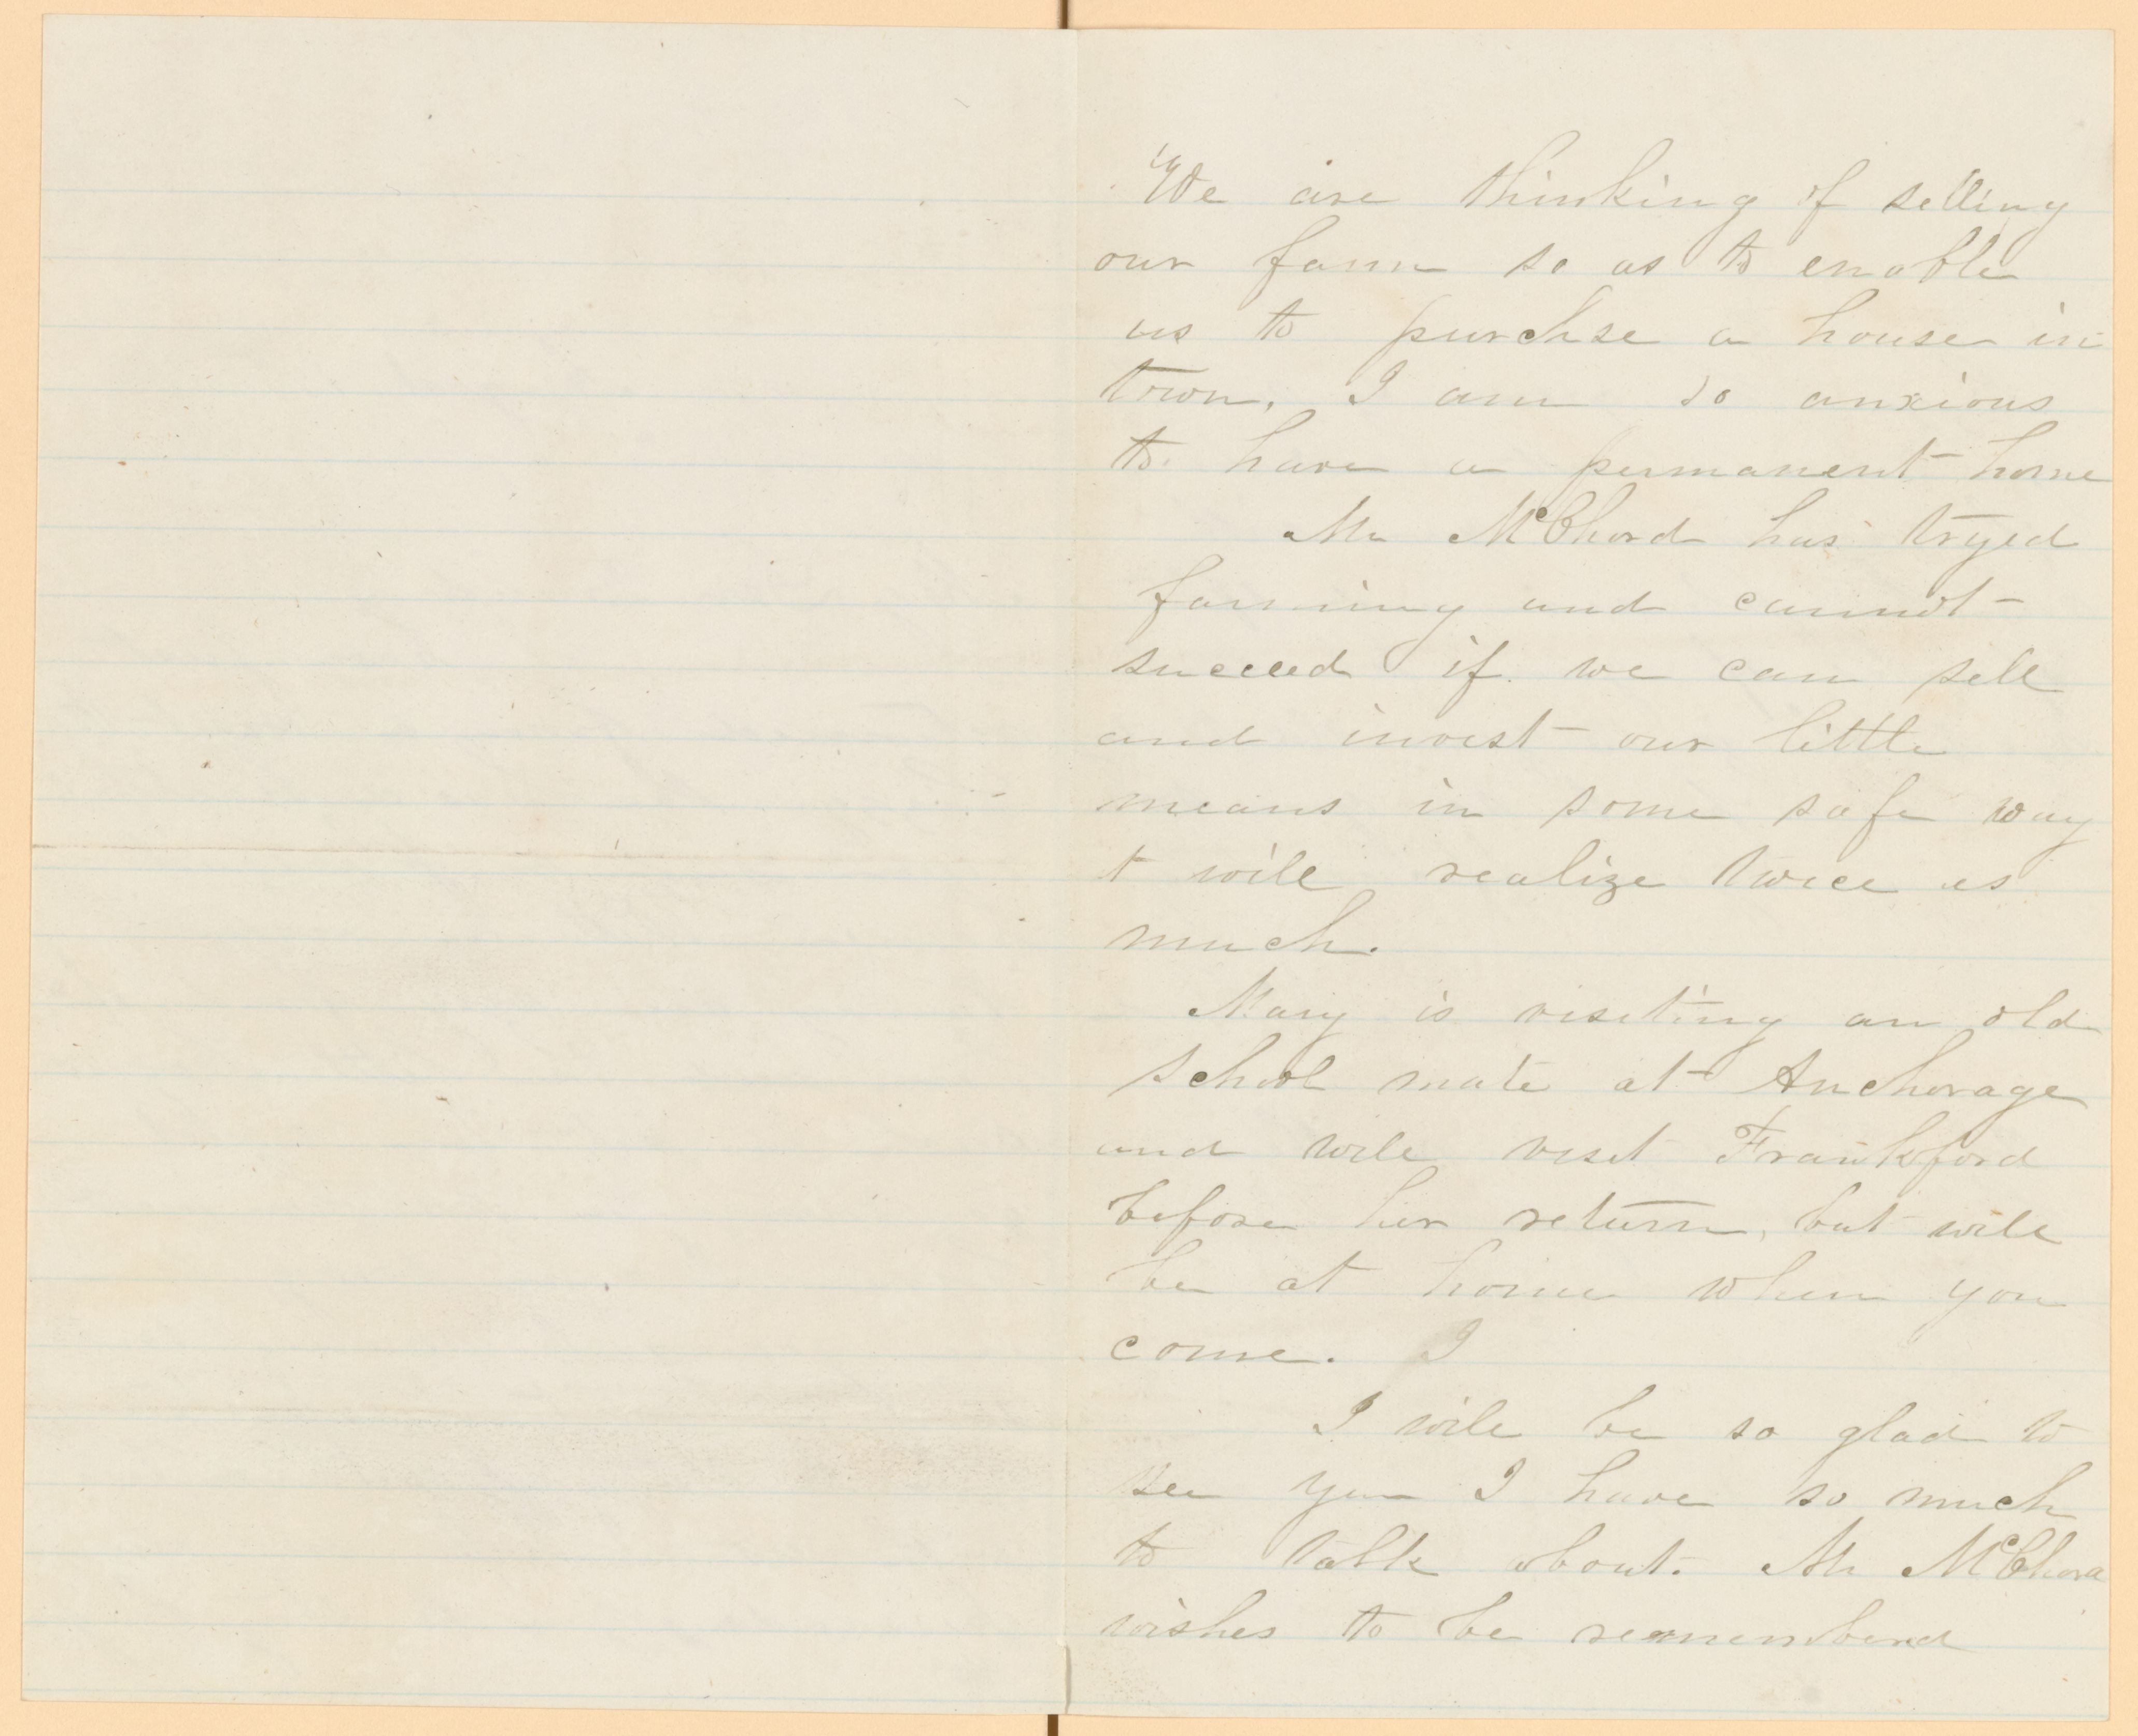 We are thinking of selling
our farm so as to enable
us to purchse a house in
town. I am so anxious
to have a permanent home
Mr McChord has tryed
farming and cannot
succeed if we can sell
and invest our little
means in some safe way
t will realize twice as
much.
Mary is visiting an old
school mate at Anchorage
and will visit Frankford
before her return, but will
be at home when you
come. I
I will be so glad to
see you I have so much
to talk about. Mr McChord
wishes to be rememberd